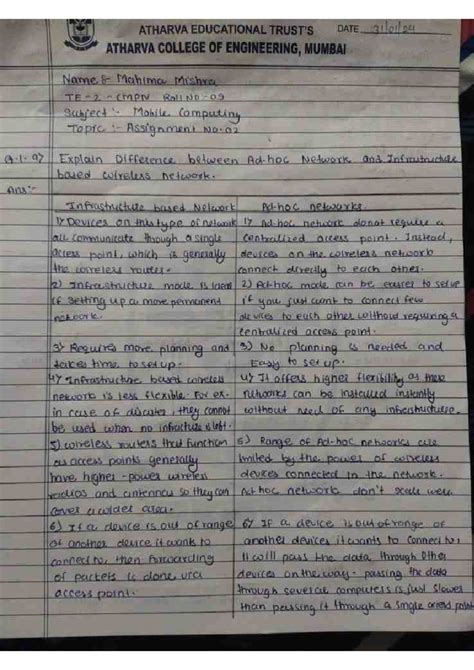 ATHARVA EDUCATIONAL TRUST'S
DATE 31/01/24
ATHARVA COLLEGE OF ENGINEERING, MUMBAI
Name :- Mahima Mishra
TE-2-CMPN Roll No-09
Subject :- Mobile Computing
Topic :- Assignment No-02
Q.1.a) Explain Difference between Ad-hoc Network and Infrastructure
based wireless network.
Ans:-
Infrastructure based Network
1) Devices on this type of network
all communicate through a single
access point, which is generally
the wireless router.
2) Infrastructure mode is ideal
if setting up a more permanent
network.
3) Requires more planning and
takes time to set up.
4) Infrastructure based wireless
network is less flexible. For ex.
in case of disaster, they cannot
be used when no infracture is left.
5) wireless routers that function
as access points generally
have higher-power wireless
radios and antennas so they can
cover a wider area.
6) If a device is out of range
of another device it wants to
connect to, then forwarding
of packets is done via
access point.
Ad-hoc networks
1) Ad-hoc network do not require a
centralized access point. Instead,
devices on the wireless network
connect directly to each other.
2) Ad-hoc mode can be easier to setup
if you just want to connect few
devices to each other without requiring a
centralized access point.
3) No planning is needed and
Easy to set up.
4) It offers higher flexibility as these
networks can be installed instantly
without need of any infrastructure.
5) Range of Ad-hoc networks are
limited by the power of wireless
devices connected in the network.
Ad-hoc network don't scale well
6) If a device is out of range of
another devices it wants to connect to,
it will pass the data through other
devices on the way. passing the data
through several computers is just slower
than passing it through a single access point